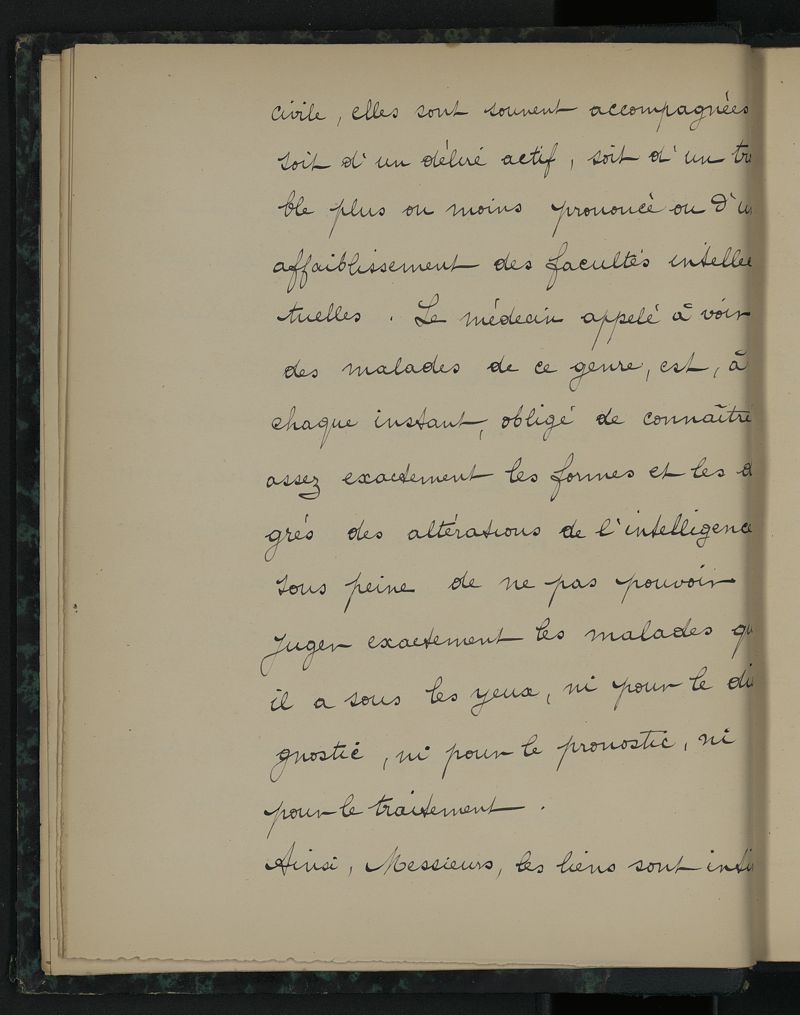 civile, elles sont souvent accompagnées
soit d'un déliré actif, soit d'un tro
ble plus ou moins prononcé ou d'un
affaiblissement des facultés intellec
tuelles. Le médecin appelé à voir
des malades de ce genre, est, à
chaque instant, obligé de connaîtré
assez exactement les formes et les d
grés des altérations de l'intelligence
sous peine de ne pas pouvoir
juger exactement les malades qu
il a sous les yeux, ni pour le dia
gnostic, ni pour le pronostic, ni
pour le traitement.
Ainsi, Messieurs, les liens sont inti